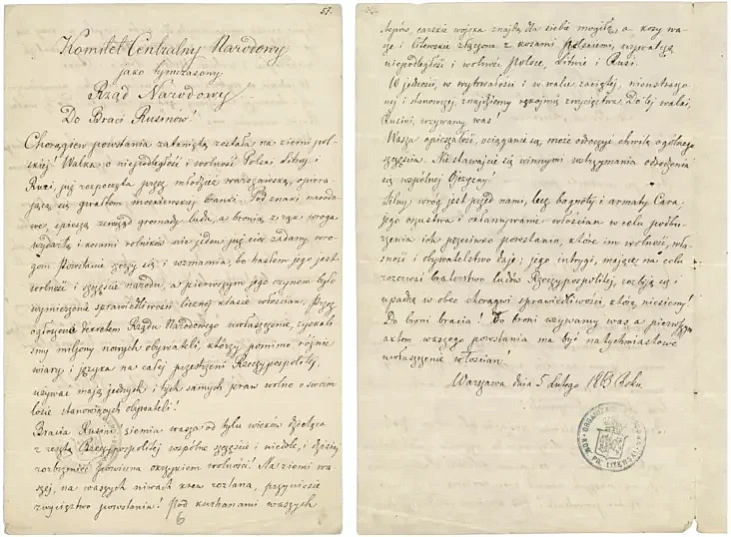 51.
Komitet Centralny Narodowy
jako tymczasowy
Rząd Narodowy
Do Braci Rusinów!
Chorągiew powstania zatknięta została na ziemi pol-
skiej! Walka o niepodległość i wolność Polski Litwy i
Rusi, już rozpoczęta przez młodzież warszawską, opiera-
jącą się gwałtom moskiewskiej branki. Pod znaki narodo-
we, spieszą zewsząd gromady ludu, a bronią z rąk wroga
wydartą i kosami rolników nie jeden już cios zadany wro-
gom. Powstanie szerzy się i wzmacnia, bo hasłem jego jest
wolność i szczęście narodu, a pierwszym jego czynem było
wymierzenie sprawiedliwości licznej klasie włościan. Przez
ogłoszone dekretem Rządu Narodowego uwłaszczenie, zyskali
śmy miljony nowych obywateli, którzy pomimo różnic
wiary i języka na całej przestrzeni Rzeczypospolitej,
używać mają jednych i tych samych praw wolno o swoim
losie stanowiących obywateli!
Bracia Rusini ziemia wasza od tylu wieków dzieląca
z resztą Rzeczypospolitej wspólne szczęście i niedole, i dzisiaj
rozbrzmieć powinna okrzykiem wolności! Na ziemi wa-
szej, na waszych niwach krew rozlana, przyniesie
zwycięztwo powstaniu! Pod kurhanami waszych
6
stepów, carskie wojska znajdą dla siebie mogiłę, a kosy wa-
sze i Litewskie złączone z kosami polskiemi, wywalczą
niepodległość i wolność Polsce, Litwie i Rusi.
W jedności, w wytrwałości i w walce zaciętej, nieustraszo-
nej i stanowczej, znajdziemy rękojmię zwycięztwa. Do tej walki,
Rusini, wzywamy was!
Wasza opieszałość, ociąganie się, może odroczyć chwilę ogólnego
szczęścia. Nie stawajcie się winnymi wstrzymania odrodzenia
się wspólnej Ojczyzny!
Silny wróg jest przed nami, lecz bagnety i armaty Cara,
jego oszustwa i okłamywanie włościan w celu podbu-
rzenia ich przeciwko powstaniu, które im wolność, wła-
sność i obywatelstwo daje; jego intrygi, mające na celu
rozerwać braterstwo ludów Rzeczypospolitej, rozbiją się i
upadną w obec chorągwi sprawiedliwości, którą niesiemy!
Do broni bracia! Do broni wzywamy was a pierwszym
aktem waszego powstania ma być natychmiastowe
uwłaszczenie włościan!
Warszawa dnia 5 Lutego 1863 Roku.